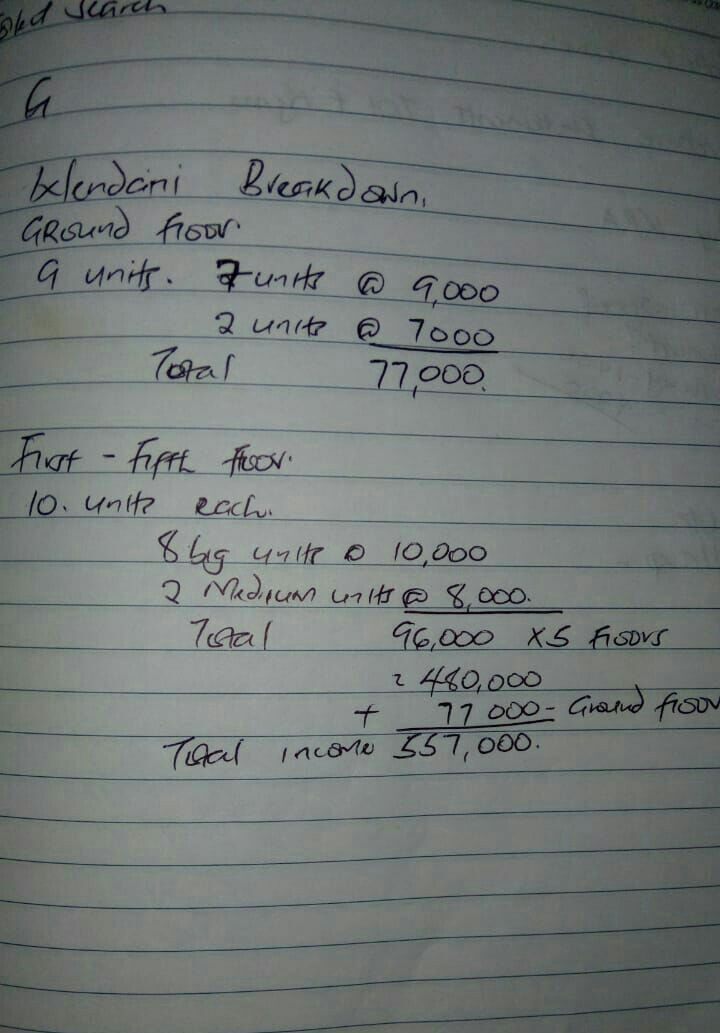 Search
G
Kelendani Breakdown.
Ground floor.
9 units. 7 units @ 9,000
2 units @ 7000
Total 77,000.
First - Fifth Floor.
10. units each.
8 big units @ 10,000
2 Medium units @ 8,000.
Total 96,000 x5 floors
= 480,000
+ 77 000 - Ground floor
Total income 557,000.